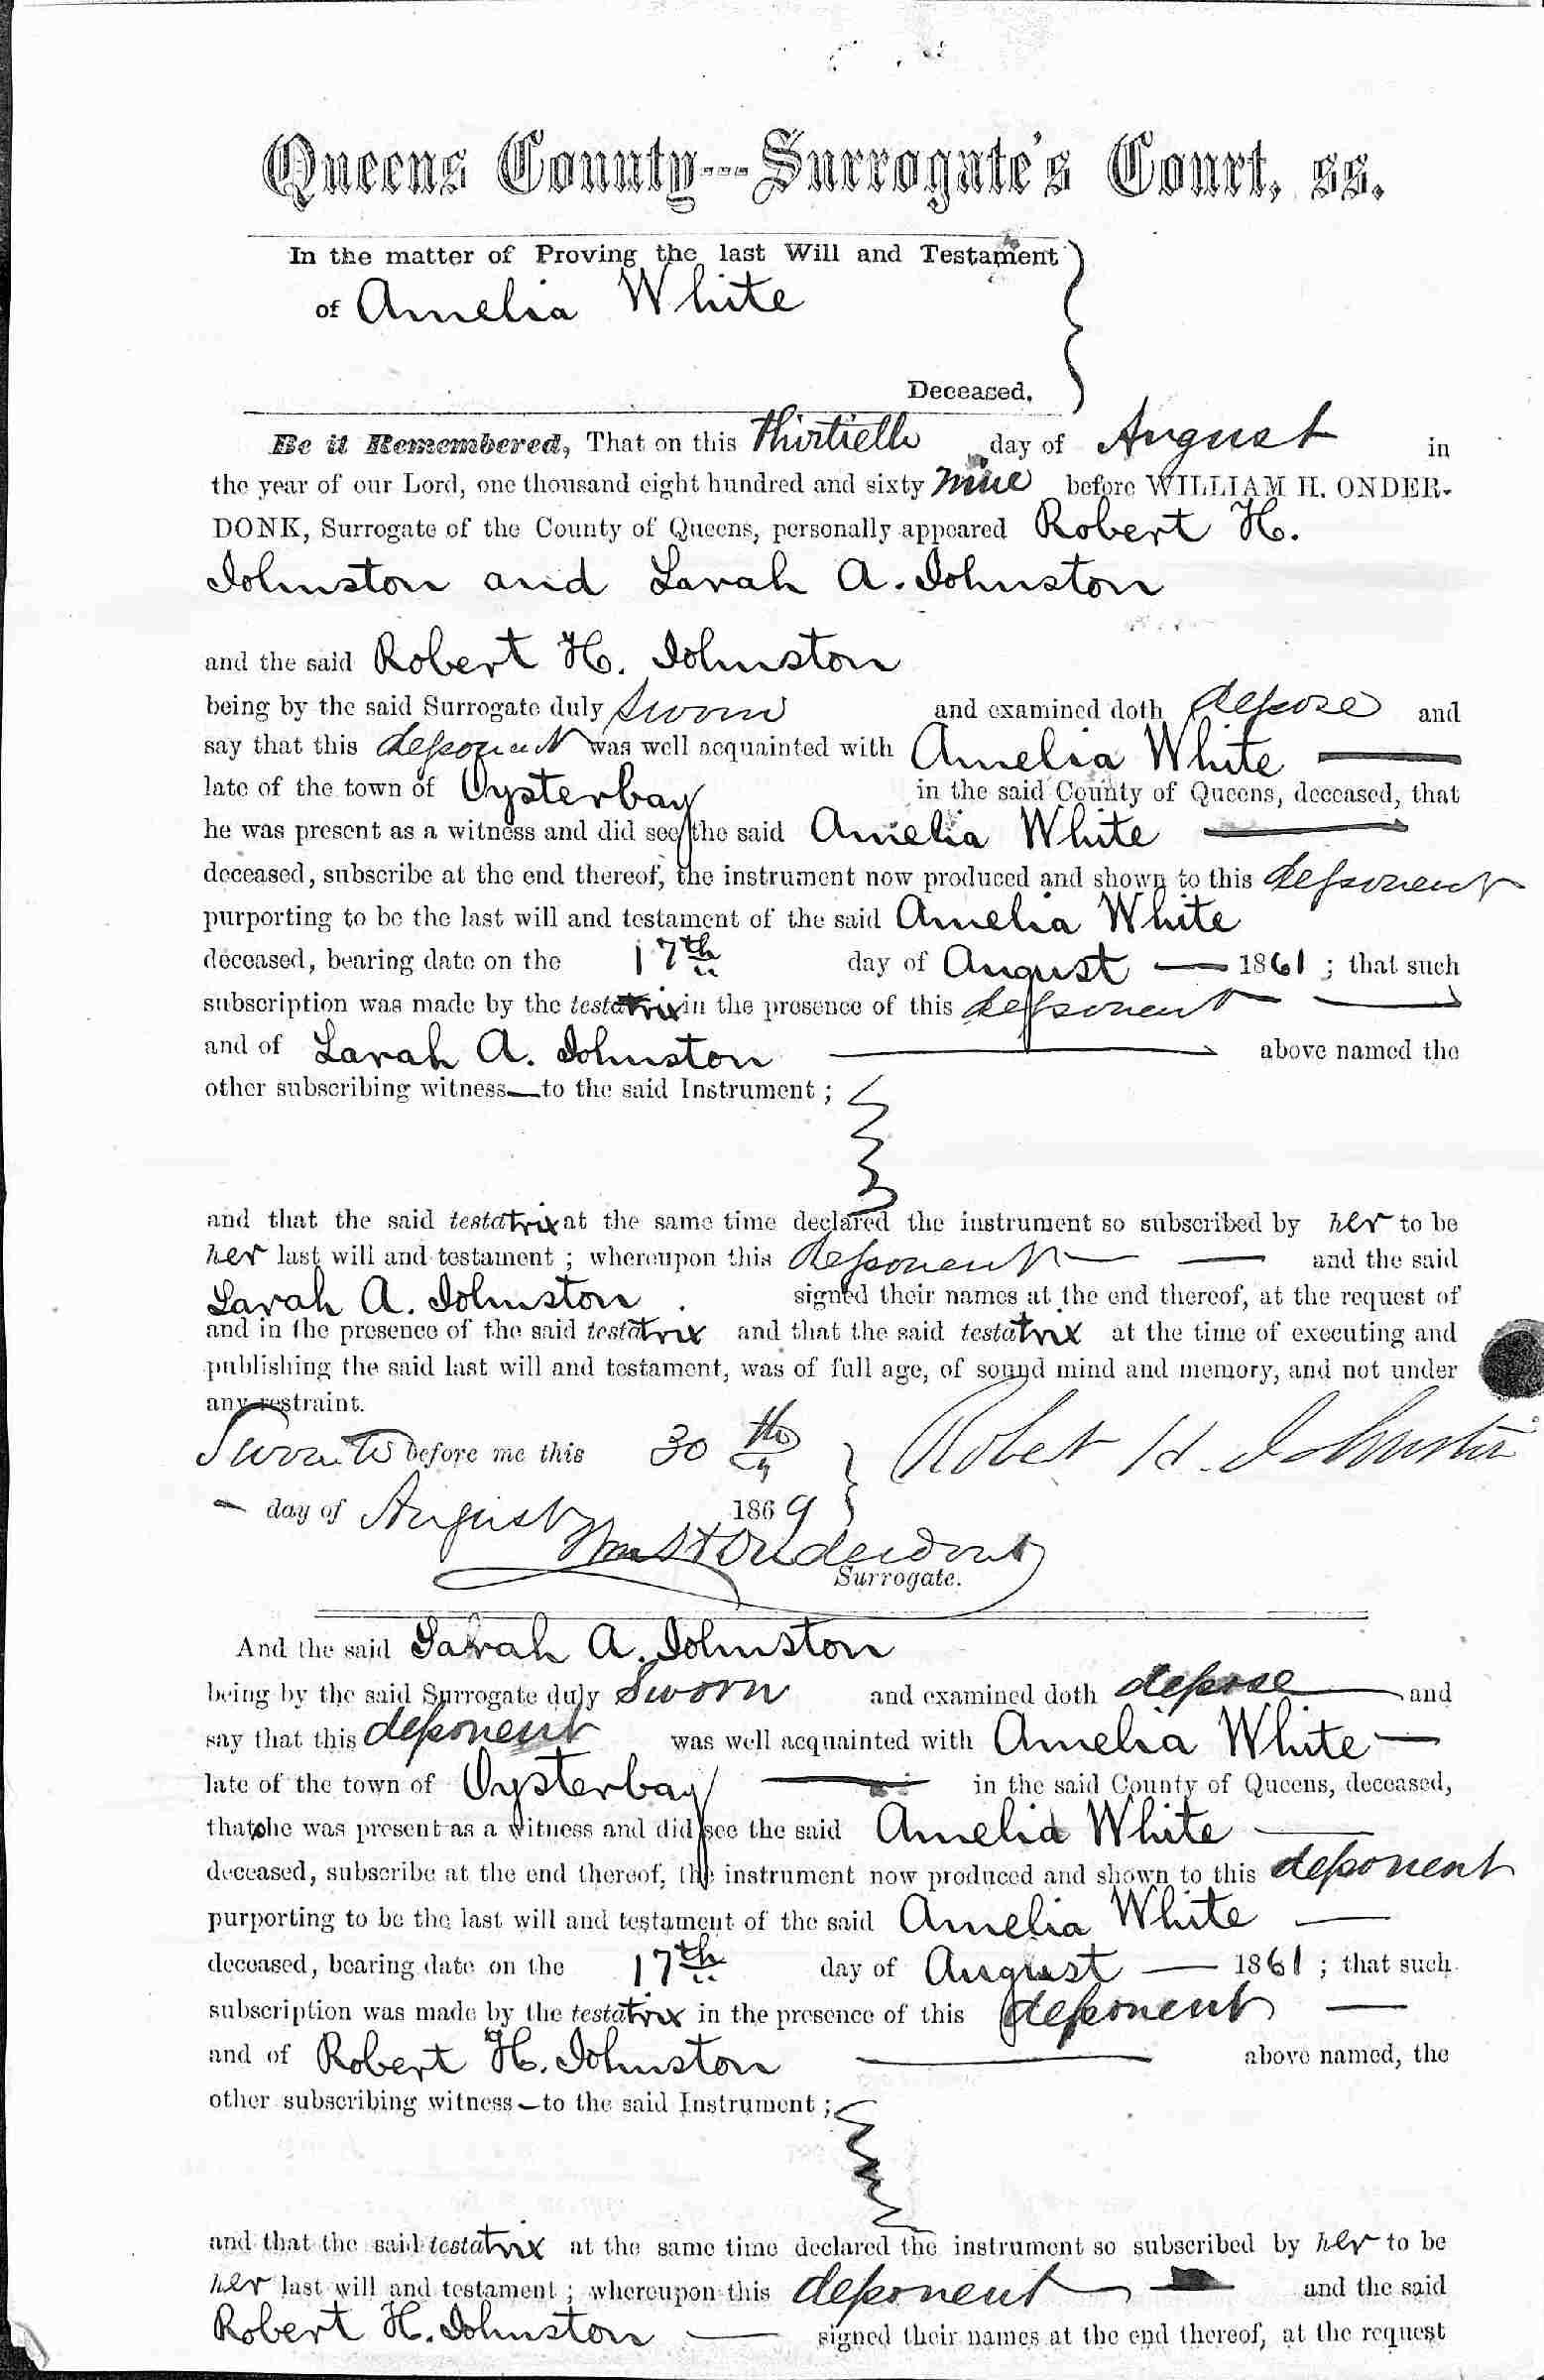 Queens County---Surrogate's Court, ss.
In the matter of Proving the last Will and Testament
of Amelia White
Deceased.
Be it Remembered, That on this thirtieth day of August in
the year of our Lord, one thousand eight hundred and sixty nine before WILLIAM H. ONDER-
DONK, Surrogate of the County of Queens, personally appeared Robert H.
Johnston and Sarah A. Johnston
and the said Robert H. Johnston
being by the said Surrogate duly sworn and examined doth depose and
say that this deponent was well acquainted with Amelia White
late of the town of Oysterbay in the said County of Queens, deceased, that
he was present as a witness and did see the said Amelia White
deceased, subscribe at the end thereof, the instrument now produced and shown to this deponent
purporting to be the last will and testament of the said Amelia White
deceased, bearing date on the 17th day of August — 1861 ; that such
subscription was made by the testatrix in the presence of this deponent
and of Sarah A. Johnston above named the
other subscribing witness—to the said Instrument ;
and that the said testatrix at the same time declared the instrument so subscribed by her to be
her last will and testament ; whereupon this deponent — and the said
Sarah A. Johnston signed their names at the end thereof, at the request of
and in the presence of the said testatrix and that the said testatrix at the time of executing and
publishing the said last will and testament, was of full age, of sound mind and memory, and not under
any restraint.
Sworn to before me this 30th Robert H. Johnston
day of August 1869
Wm H Onderdonk
Surrogate.
And the said Sarah A. Johnston
being by the said Surrogate duly Sworn and examined doth depose and
say that this deponent was well acquainted with Amelia White —
late of the town of Oysterbay — in the said County of Queens, deceased,
that she was present as a witness and did see the said Amelia White —
deceased, subscribe at the end thereof, the instrument now produced and shown to this deponent
purporting to be the last will and testament of the said Amelia White —
deceased, bearing date on the 17th day of August — 1861 ; that such
subscription was made by the testatrix in the presence of this deponent —
and of Robert H. Johnston above named, the
other subscribing witness—to the said Instrument ;
and that the said testatrix at the same time declared the instrument so subscribed by her to be
her last will and testament ; whereupon this deponent — and the said
Robert H. Johnston — signed their names at the end thereof, at the request